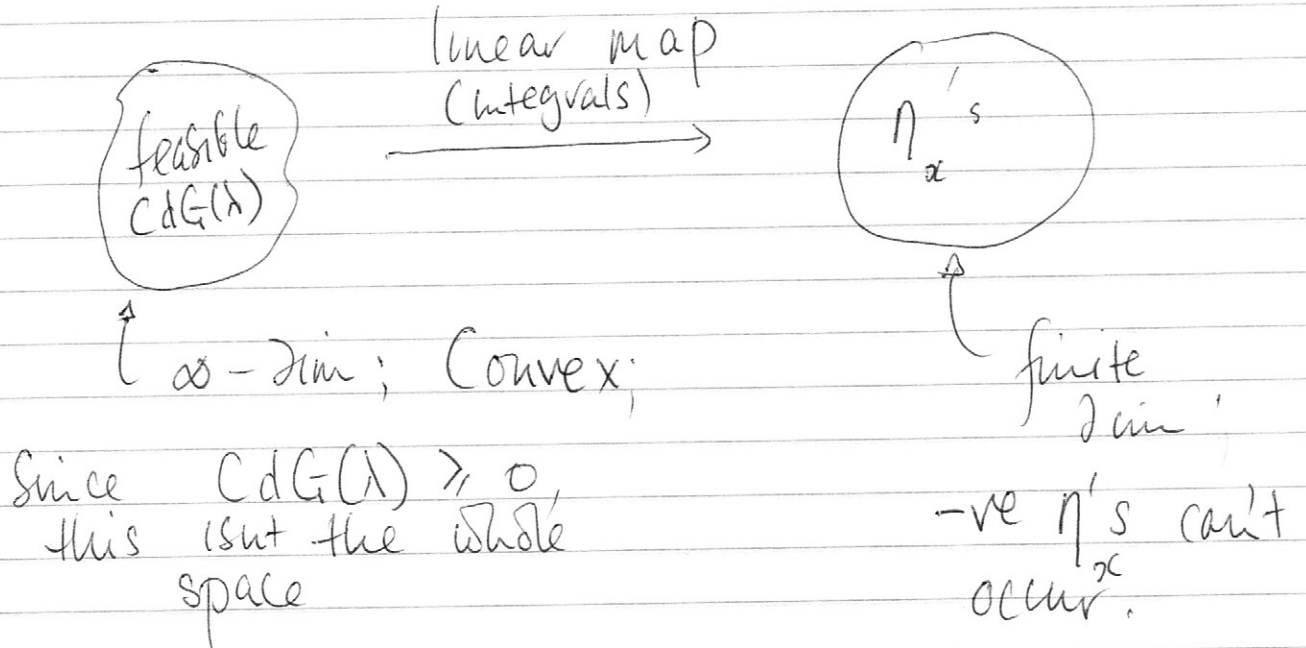 linear map
(integrals)
feasible
CdG(λ)
η's
x
∞-dim; Convex;
finite
dim;
Since CdG(λ) ≥ 0,
this isnt the whole
space
-ve η's can't
x
occur.